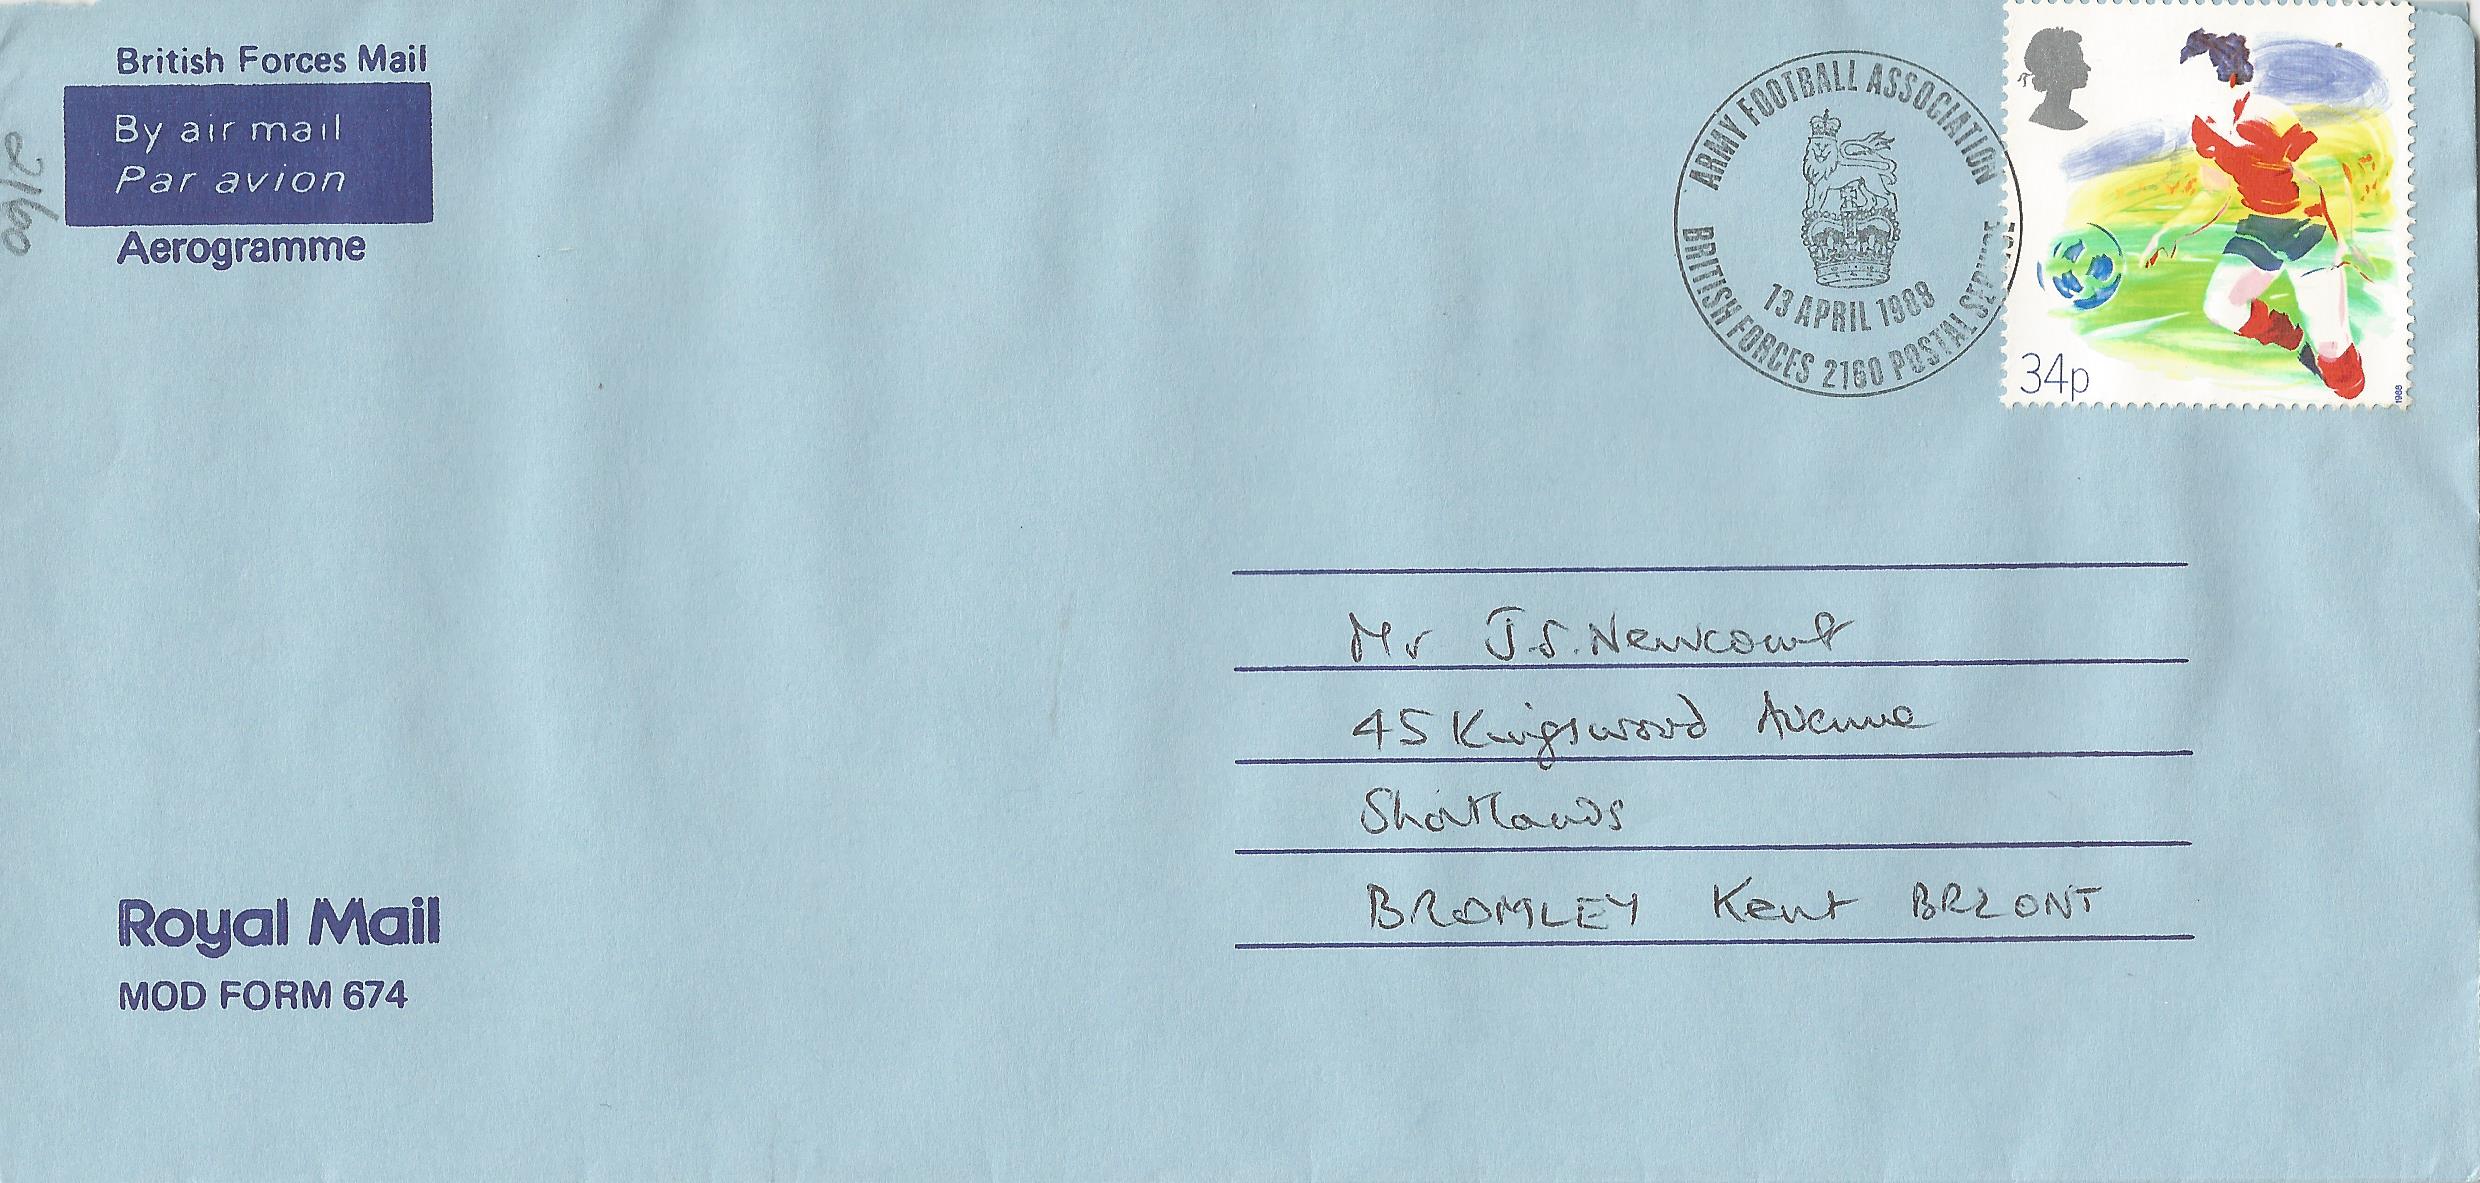 British Forces Mail
By air mail
Par avion
Aerogramme
ARMY FOOTBALL ASSOCIATION
13 APRIL 1988
BRITISH FORCES 2160 POSTAL SERVICE
34p
1988
Mr J.S. Newcourt
45 Kingswood Avenue
Shortlands
BROMLEY Kent BR2 0NT
Royal Mail
MOD FORM 674